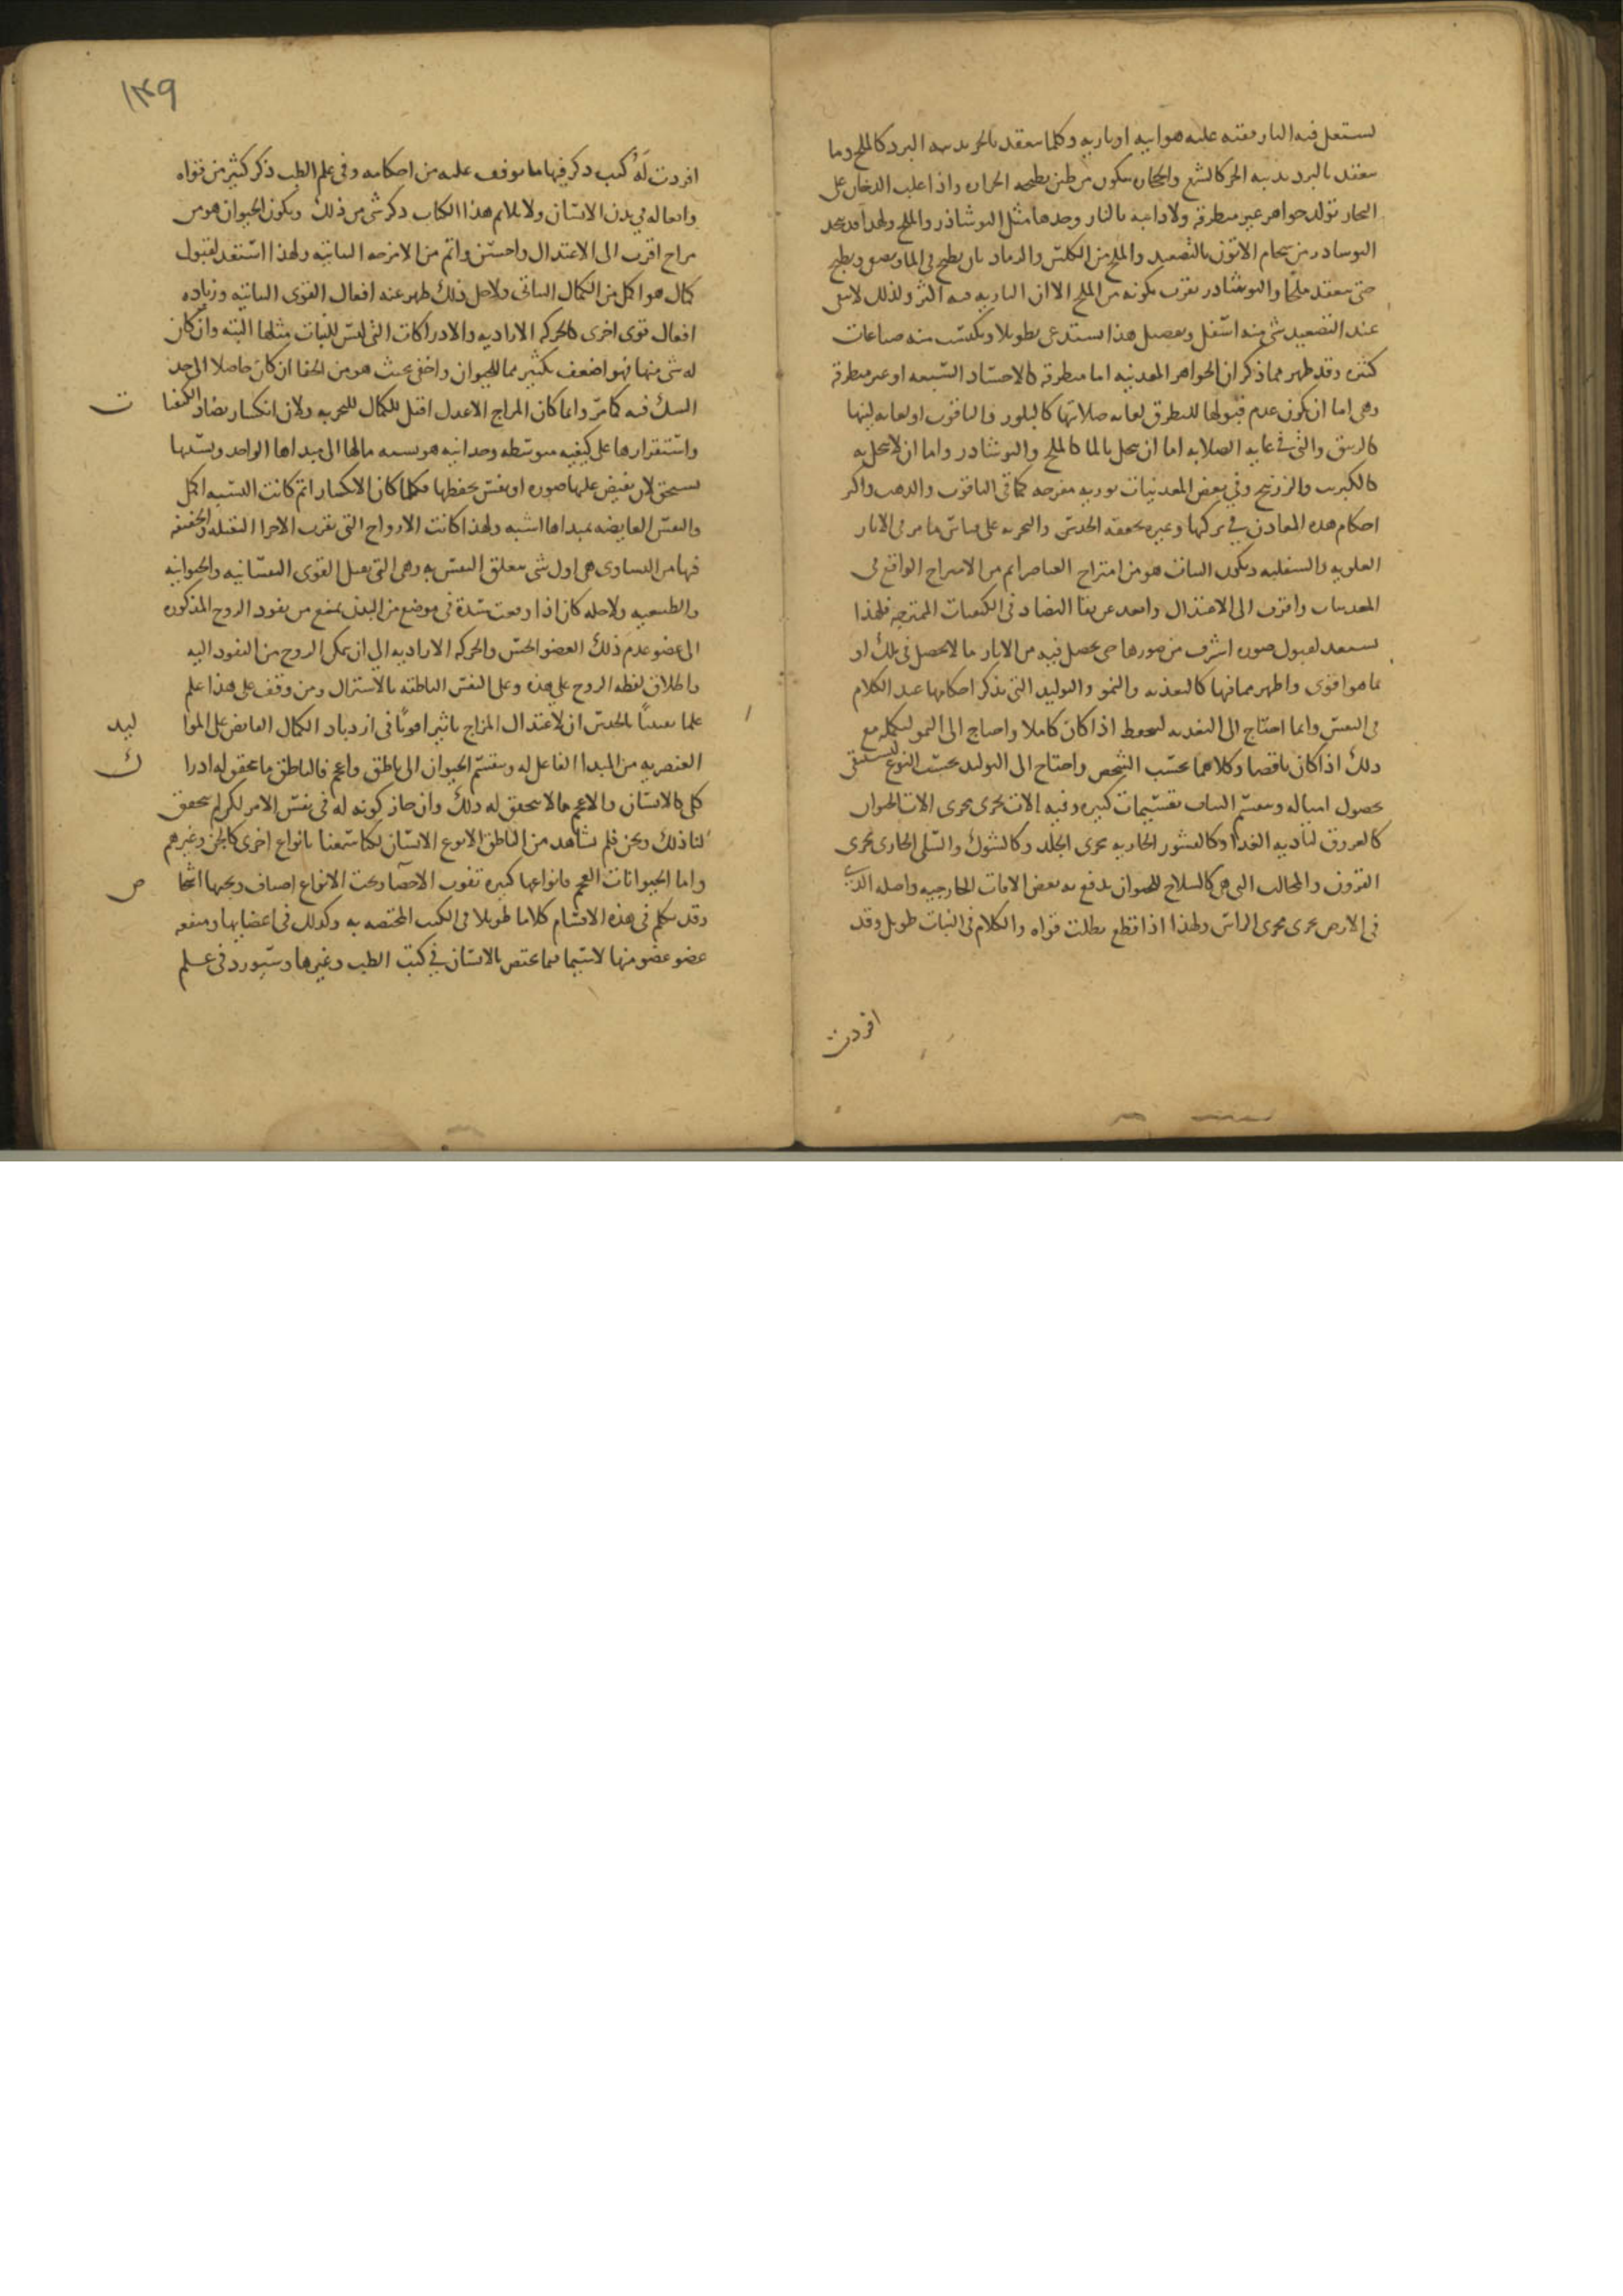 يستعل فيه النار يقيه عليه هوائيه او ناريه وكلما ينعقد بالحر يذيبه البرد كالملح وما
ينعقد بالبرد يذيبه الحر كالشمع والحجاره يتكون من طين يطبخه الحراره واذا غلب الدخان على
البخار تولد جواهر غير متطرقه ولا ذائبه بالنار وحدها مثل النوشاذر والملح ولهذا قد يتخذ
النوشاذر من سخام الاتون بالتصعيد والملح من الكلس والرماد بان يطبخ في الما ويصفى ويطبخ
حتى ينعقد ملحًا والنوشاذر يقرب تكونه من الملح الا ان الناريه فيه اكثر ولذلك لا يبقى
عند التصعيد شى منه اسفل وتفصيل هذا يستدعى تطويلا ويكتسب منه صناعات
كثيره وقد ظهر مما ذكر ان الجواهر المعدنيه اما متطرقه كالاجساد السبعه او غير متطرقه
وهى اما ان يكون عدم قبولها للتطرق لغايه صلابتها كالبلور والياقوت او لغايه لينها
كالزيبق والتى في غايه الصلابه اما ان ينحل بالما كالملح والنوشاذر واما ان لا ينحل به
كالكبريت والزرنيخ وفي بعض المعدنيات نوريه مفرحه كما في الياقوت والذهب واكثر
احكام هذه المعادن في تركبها وغيره تحققه الحدس والتجربه على قياس ما مر في الاثار
العلويه والسفليه وتكون النبات هو من امتزاج العناصر اتم من الامتزاج الواقع في
المعدنيات واقرب الى الاعتدال وابعد عن بقا التضاد في الكيفيات الممتزجه فلهذا
يستعد لقبول صوره اشرف من صورها حتى يحصل فيه من الاثار ما لا يحصل في تلك او
ما هو اقوى واظهر مما فيها كالتغذيه والنمو والتوليد التى نذكر احكامها عند الكلام
في النفس وانما احتاج الى التغذيه ليحفظ اذا كان كاملا واحتاج الى النمو لتكمله مع
ذلك اذا كان ناقصا وكلاهما بحسب الشخص واحتاج الى التوليد بحسب النوع ليستبقى
بحصول امثاله وينقسم النبات تقسيمات كثيره وفيه الات تجرى مجرى الات الحيوان
كالعروق لتاديه الغذا وكالقشور الجاريه مجرى الجلد وكالشوك والسلى الجارى مجرى
القرون والمخالب التى هى كالسلاح للحيوان يدفع به بعض الافات الخارجيه واصله الذى
في الارض يجرى مجرى الراس ولهذا اذا قطع بطلت قواه والكلام في النبات طويل وقد
افردت
١٣٩
افردت لَهُ كتب ذكر فيها ما توقف عليه من احكامه وفي علم الطب ذكر كثير من قواه
وافعاله في بدن الانسان ولا يلائم هذا الكتاب ذكر شى من ذلك وتكون الحيوان هو من
مزاج اقرب الى الاعتدال واحسن واتم من الامزجه النباتيه ولهذا استعد لقبول
كمال هو اكمل من الكمال النباتى ولاجل ذلك ظهر عنه افعال القوى النباتيه وزياده
افعال قوى اخرى كالحركه الاراديه والادراكات التى ليس للنبات مثلها البته وان كان
له شى منها فهو اضعف بكثير مما للحيوان واخفى بحيث هو من الخفا ان كان حاصلا الى حد
الشك فيه كما مر وانما كان المزاج الاعدل اقبل للكمال للتجربه ولان انكسار تضاد الكيفيا ت
واستقرارها على كيفيه متوسطه وحدانيه هو نسبه ما لها الى مبداها الواحد وبسببها
يستحق لان يفيض عليها صوره او نفس يحفظها فكلما كان الانكسار اتم كانت النسبه اكمل
والنفس الفايضه بمبداها اشبه ولهذا كانت الارواح التى يقرب الاجزا الثقيله والخفيفه
فيها من التساوى هى اول شى يتعلق النفس به وهى التى يقبل القوى النفسانيه والحيوانيه
والطبيعيه ولاجله كان اذا وقعت سدة في موضع من البدن يمنع من نفوذ الروح المذكوره
الى عضو عدم ذلك العضو الحس والحركه الاراديه الى ان يمكن الروح من النفوذ اليه
واطلاق لفظه الروح على هذه وعلى النفس الناطقه بالاشتراك ومن وقف على هذا علم
علما يقينياً بالحدس ان لاعتدال المزاج تاثيرا قويًا في ازدياد الكمال الفايض على الموا ليد
العنصريه من المبدا الفاعل له وينقسم الحيوان الى ناطق واعجم فالناطق ما تحقق له ادرا ك
كلى كالانسان والاعجم ما لا يتحقق له ذلك وان جاز كونه له في نفس الامر لكن لم يتحقق
لنا ذلك ونحن فلم نشاهد من الناطق الا نوع الانسان لكنا سمعنا بانواع اخرى كالجن وغيرهم
واما الحيوانات العجم فانواعها كثيره تفوت الاحصآ وتحت الانواع اصناف وتحتها اشخا ص
وقد تكلم في هذه الاقسام كلاما طويلا في الكتب المختصه به وكذلك في اعضايها ومنفعه
عضو عضو منها لاسيما فيما يختص بالانسان في كتب الطب وغيرها وسيورد في علم